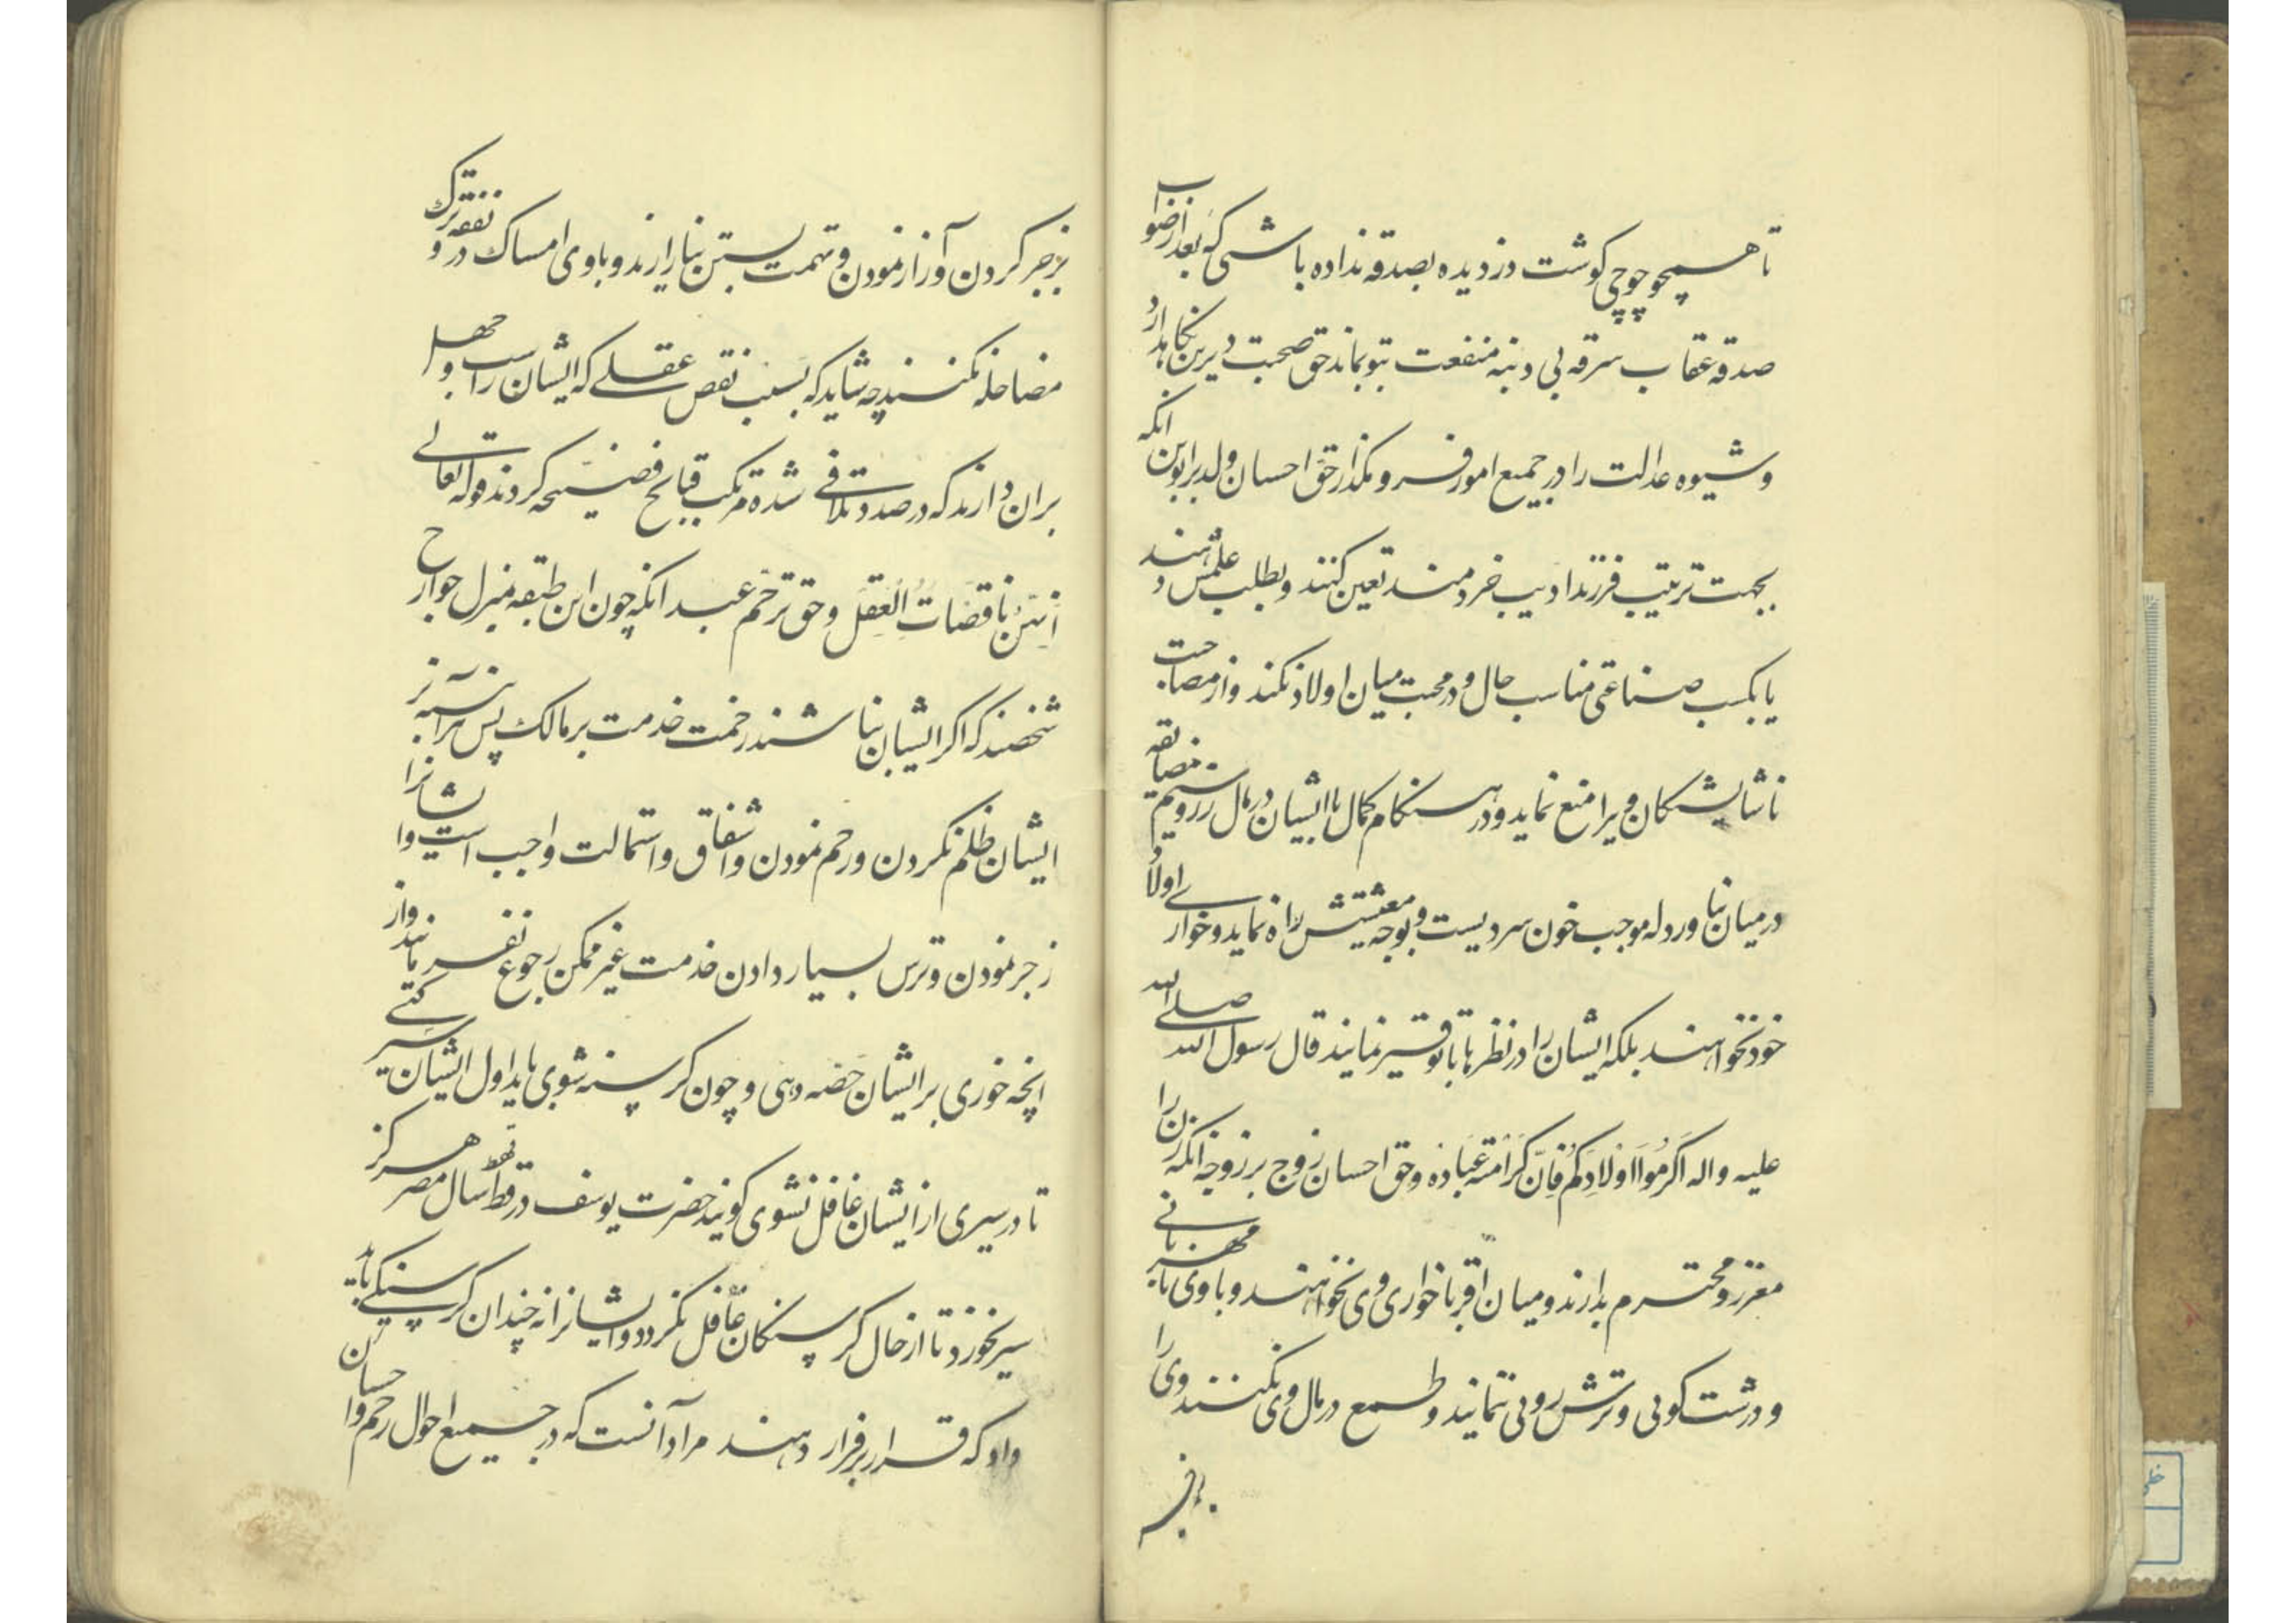 تا همچو چوچی کوشت دزدیده بصدقه نداده باشی که بعد از ضواب
صدقه عقاب سرقه بی دنبه منفعت بتو بماند حق صحبت دیرین نکاهدارد
و شیوه عدالت را در جمیع امور فرو مکذار حق احسان ولد بر ابوین انکه
بجهت تربیت فرزند ادیب خردمند تعین کنند و بطلب علمش دهند
یا بکسب صناعتی مناسب حال و در محبت میان اولاد نکند و از مصاحبت
ناشایشتکان ویرا منع نماید و در هنکام کمال با ایشان در مال زر و سیم مضایقه
در میان نیاورد له موجب خون سردیست و بوجه معیشتش راه نماید و خواری اولاد
خود نخواهند بلکه ایشان را در نظرها با توقیر نمایند قال رسول الله صلی الله
علیه واله اکرموا اولادکم فان کرامة عباده و حق احسان زوج بر زوجه انکه زن را
معزز و محترم بدارند و میان اقربا خواری وی نخواهند و با وی نا مهربانی
و درشت کویی و ترش رویی ننمایند و طمع در مال وی نکنند و وی را
بزجر کردن و آزار نمودن و تهمت بستن نیازارند و با وی امساک در نفقه و ترک
مضاحله نکنند چه شاید که بسبب نقص عقلی که ایشان راست و جهل
بران دارند که در صدد تلافی شده مرتکب قبایح فضیحه کردند قوله تعالی
انتن ناقصات العقل و حق ترحم عبد انکه چون این طبقه بمنزل جوارح
شخصند که اکر ایشان نباشند زحمت خدمت بر مالک پس هرآینه بر
ایشان ظلم نکردن و رحم نمودن و اشفاق و استمالت واجب است و ایشانرا
زجر نمودن و ترس بسیار دادن خدمت غیر ممکن رجوع نفرمایند و از
انچه خوری بر ایشان حصه دهی و چون کرسنه شوی باید اول ایشان سیر کنی
تا در سیری از ایشان غافل نشوی کویند حضرت یوسف در قحط سال مصر هرکز
سیر نخورد تا از حال کرسنکان غافل نکردد و ایشانرا نه چندان کرسنکی باید
داد که قرار بر فرار دهند مراد آنست که در جمیع احوال رحم و احسان